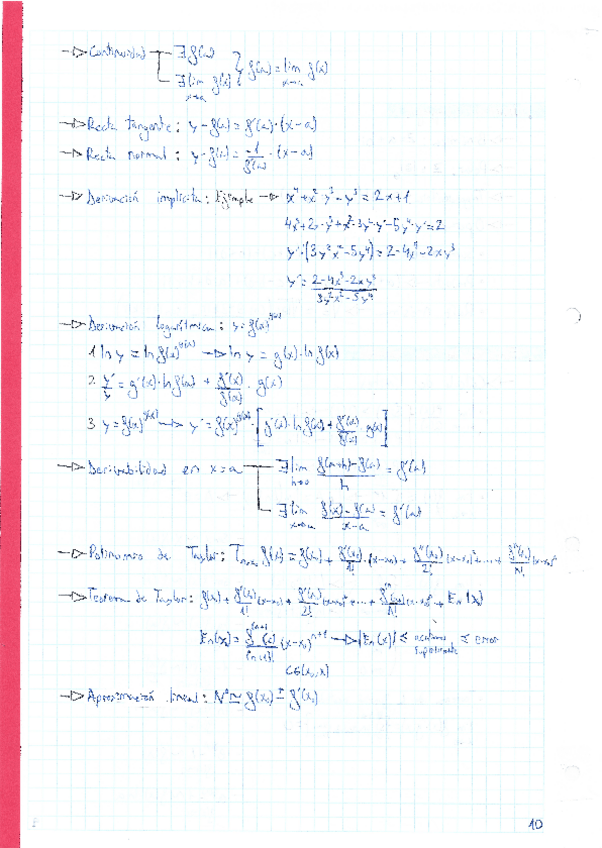 → Continuidad ∃ f(a) } f(a) = lim x→a f(x)
∃ lim x→a f(x)
→ Recta tangente: y-f(a) = f'(a)·(x-a)
→ Recta normal: y-f(a) = -1/f'(a) · (x-a)
→ Derivación implícita: Ejemplo → x⁴+x²·y³-y⁵ = 2x+1
4x³+2x·y³+x²·3y²·y'-5y⁴·y' = 2
y'·(3y²x²-5y⁴) = 2-4x³-2xy³
y' = (2-4x³-2xy³)/(3y²x²-5y⁴)
→ Derivación logarítmica: y = f(x)^g(x)
1. ln y = ln f(x)^g(x) → ln y = g(x)·ln f(x)
2. y'/y = g'(x)·ln f(x) + f'(x)/f(x) · g(x)
3. y = f(x)^g(x) → y' = f(x)^g(x) · [g'(x)·ln f(x) + f'(x)/f(x) · g(x)]
→ Derivabilidad en x=a ∃ lim h→0 (f(a+h)-f(a))/h = f'(a)
∃ lim x→a (f(x)-f(a))/(x-a) = f'(a)
→ Polinomio de Taylor: f(x) = f(x₀) + f'(x₀)/1! · (x-x₀) + f''(x₀)/2! (x-x₀)² + ... + fⁿ(x₀)/n! (x-x₀)ⁿ
→ Teorema de Taylor: f(x₀) + f'(x₀)/1! (x-x₀) + f''(x₀)/2! (x-x₀)² + ... + fⁿ(x₀)/n! (x-x₀)ⁿ + En(x)
En(x) = f^(n+1)(c)/(n+1)! (x-x₀)^(n+1) → |En(x)| ≤ ≤ error
c∈(x₀,x)
→ Aproximación lineal:
10